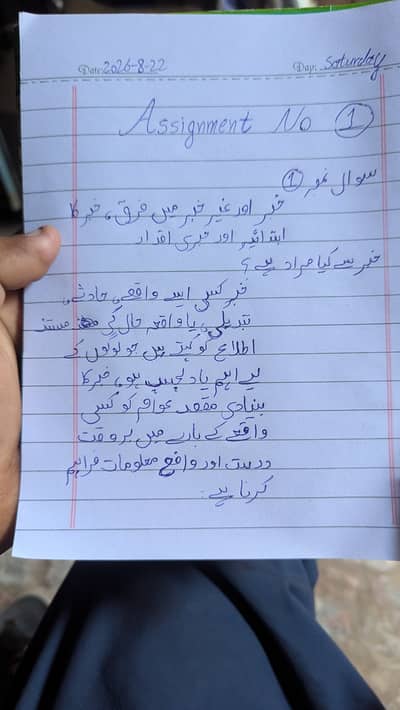 Date: 2026-8-22 Day: Saturday
Assignment No 1
سوال نمبر 1
خبر اور غیر خبر میں فرق، خبر کا
ابتدائیہ اور خبری اقدار
خبر سے کیا مراد ہے؟
خبر کسی ایسے واقعے، حادثے،
تبدیلی، یا واقعہ حال کی مستند
اطلاع کو کہتے ہیں جو لوگوں کے
لیے اہم یا دلچسپ ہو، خبر کا
بنیادی مقصد عوام کو کسی
واقعے کے بارے میں بروقت
درست اور واضح معلومات فراہم
کرنا ہے۔